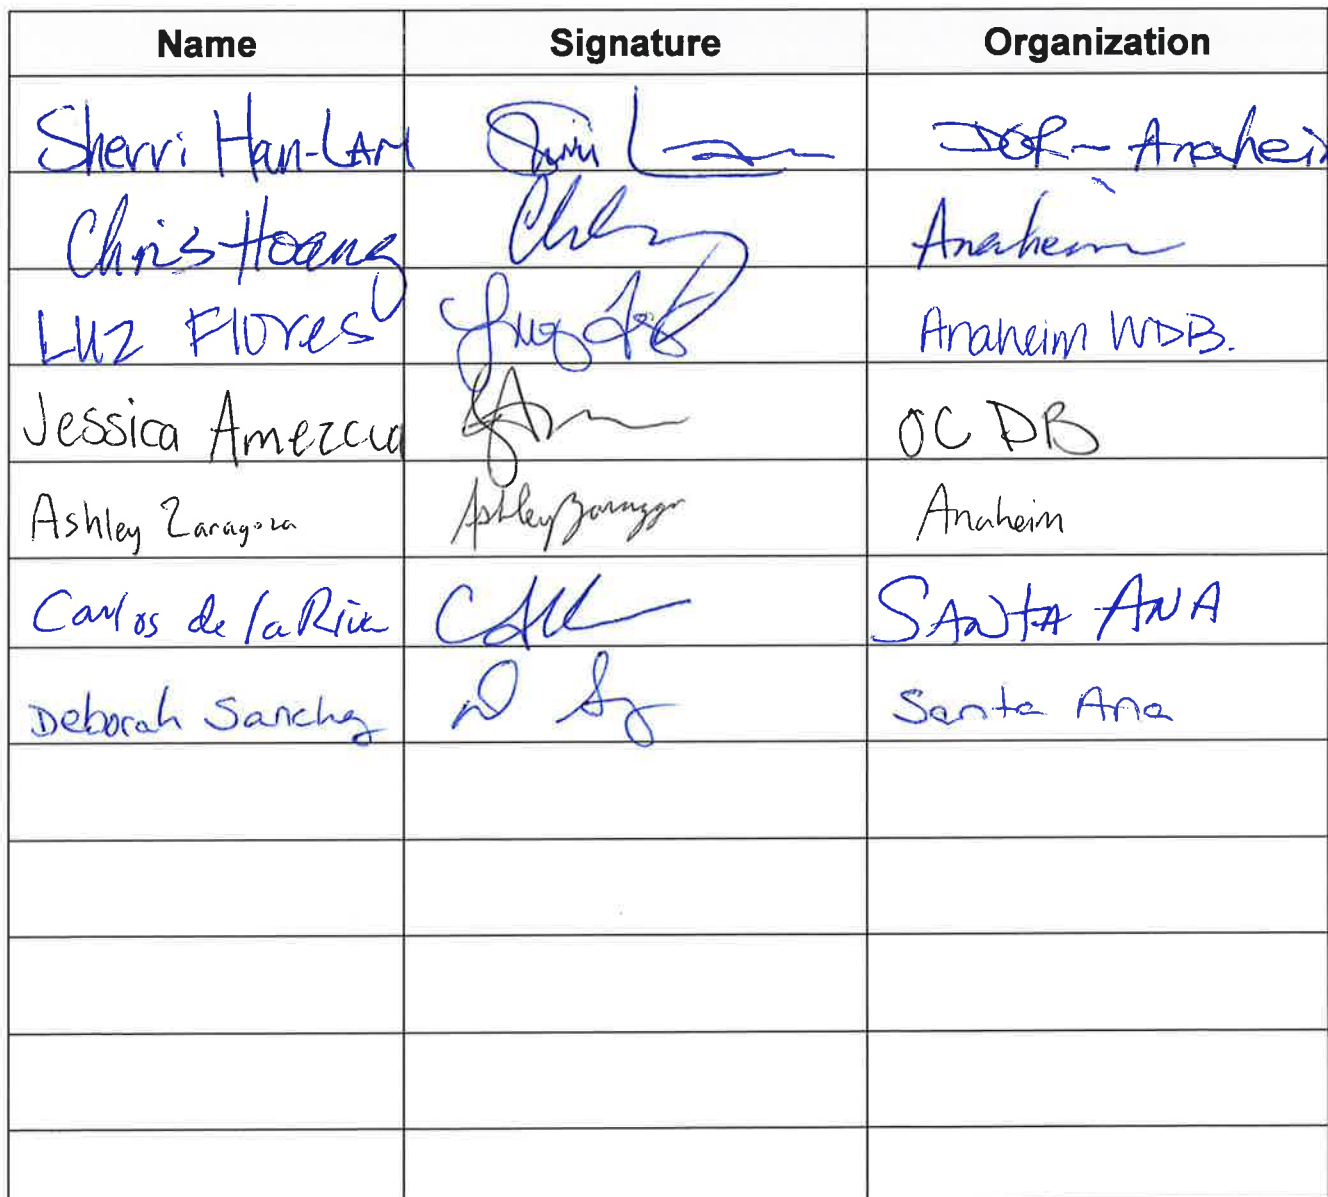 Name Signature Organization
Sherri Han-LAM DOR- Anaheim
Chris Hoang Anaheim
LUZ Flores Anaheim WDB.
Jessica Amezcua OC DB
Ashley Zaragoza Ashley Zaragoza Anaheim
Carlos de la Riva SANTA ANA
Deborah Sanchez Santa Ana